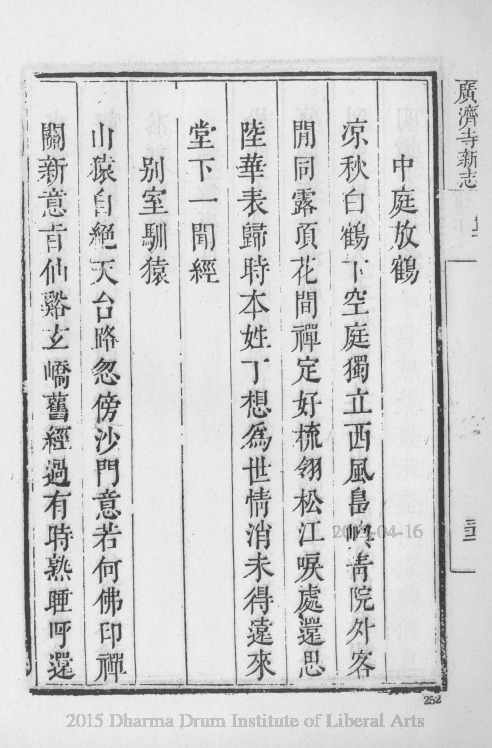 廣濟寺新志
中庭放鶴
凉秋白鶴下空庭獨立西風島嶼青院外客
閒同露頂花間禪定好梳翎松江唳處還思
陸華表歸時本姓丁想為世情消未得遠來
堂下一聞經
别室馴猿
山猿自絕天台路忽傍沙門意若何佛印禪
關新意旨仙谿玄嶠舊經過有時熟睡呼還
252
2015 Dharma Drum Institute of Liberal Arts